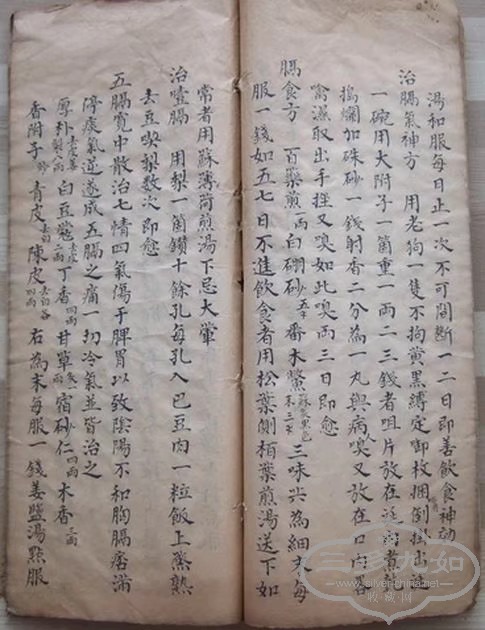 湯和服每日止一次不可間斷一二日即善飲食神効
治膈氣神方　用老狗一隻不拘黃黑縛定啣枚捆倒掛
一碗用大附子一箇重一兩二三錢者咀片放在煮
搗爛加硃砂一錢射香二分為一丸與病人嗅又放在口內
禽滋取出手拴又嗅如此嗅兩三日即愈
膈食方　百藥煎一兩白硼砂五錢番木鱉三味共為細末每
服一錢如五七日不進飲食者用松葉側栢葉煎湯送下如
常者用蘇薄荷煎湯下忌大葷
治噎膈　用梨一箇鑽十餘孔每孔入巴豆肉一粒飯上蒸熟
去豆喫梨數次即愈
五膈寬中散治七情四氣傷于脾胃以致陰陽不和胸膈痞滿
停痰氣逆遂成五膈之痛一切冷氣並皆治之
厚朴 白豆蔻 丁香四兩 甘草 宿砂仁四兩 木香三兩
香附子 青皮 陳皮四兩 右為末每服一錢姜鹽湯點服
三彩九如
www.silver-china.net
收藏网